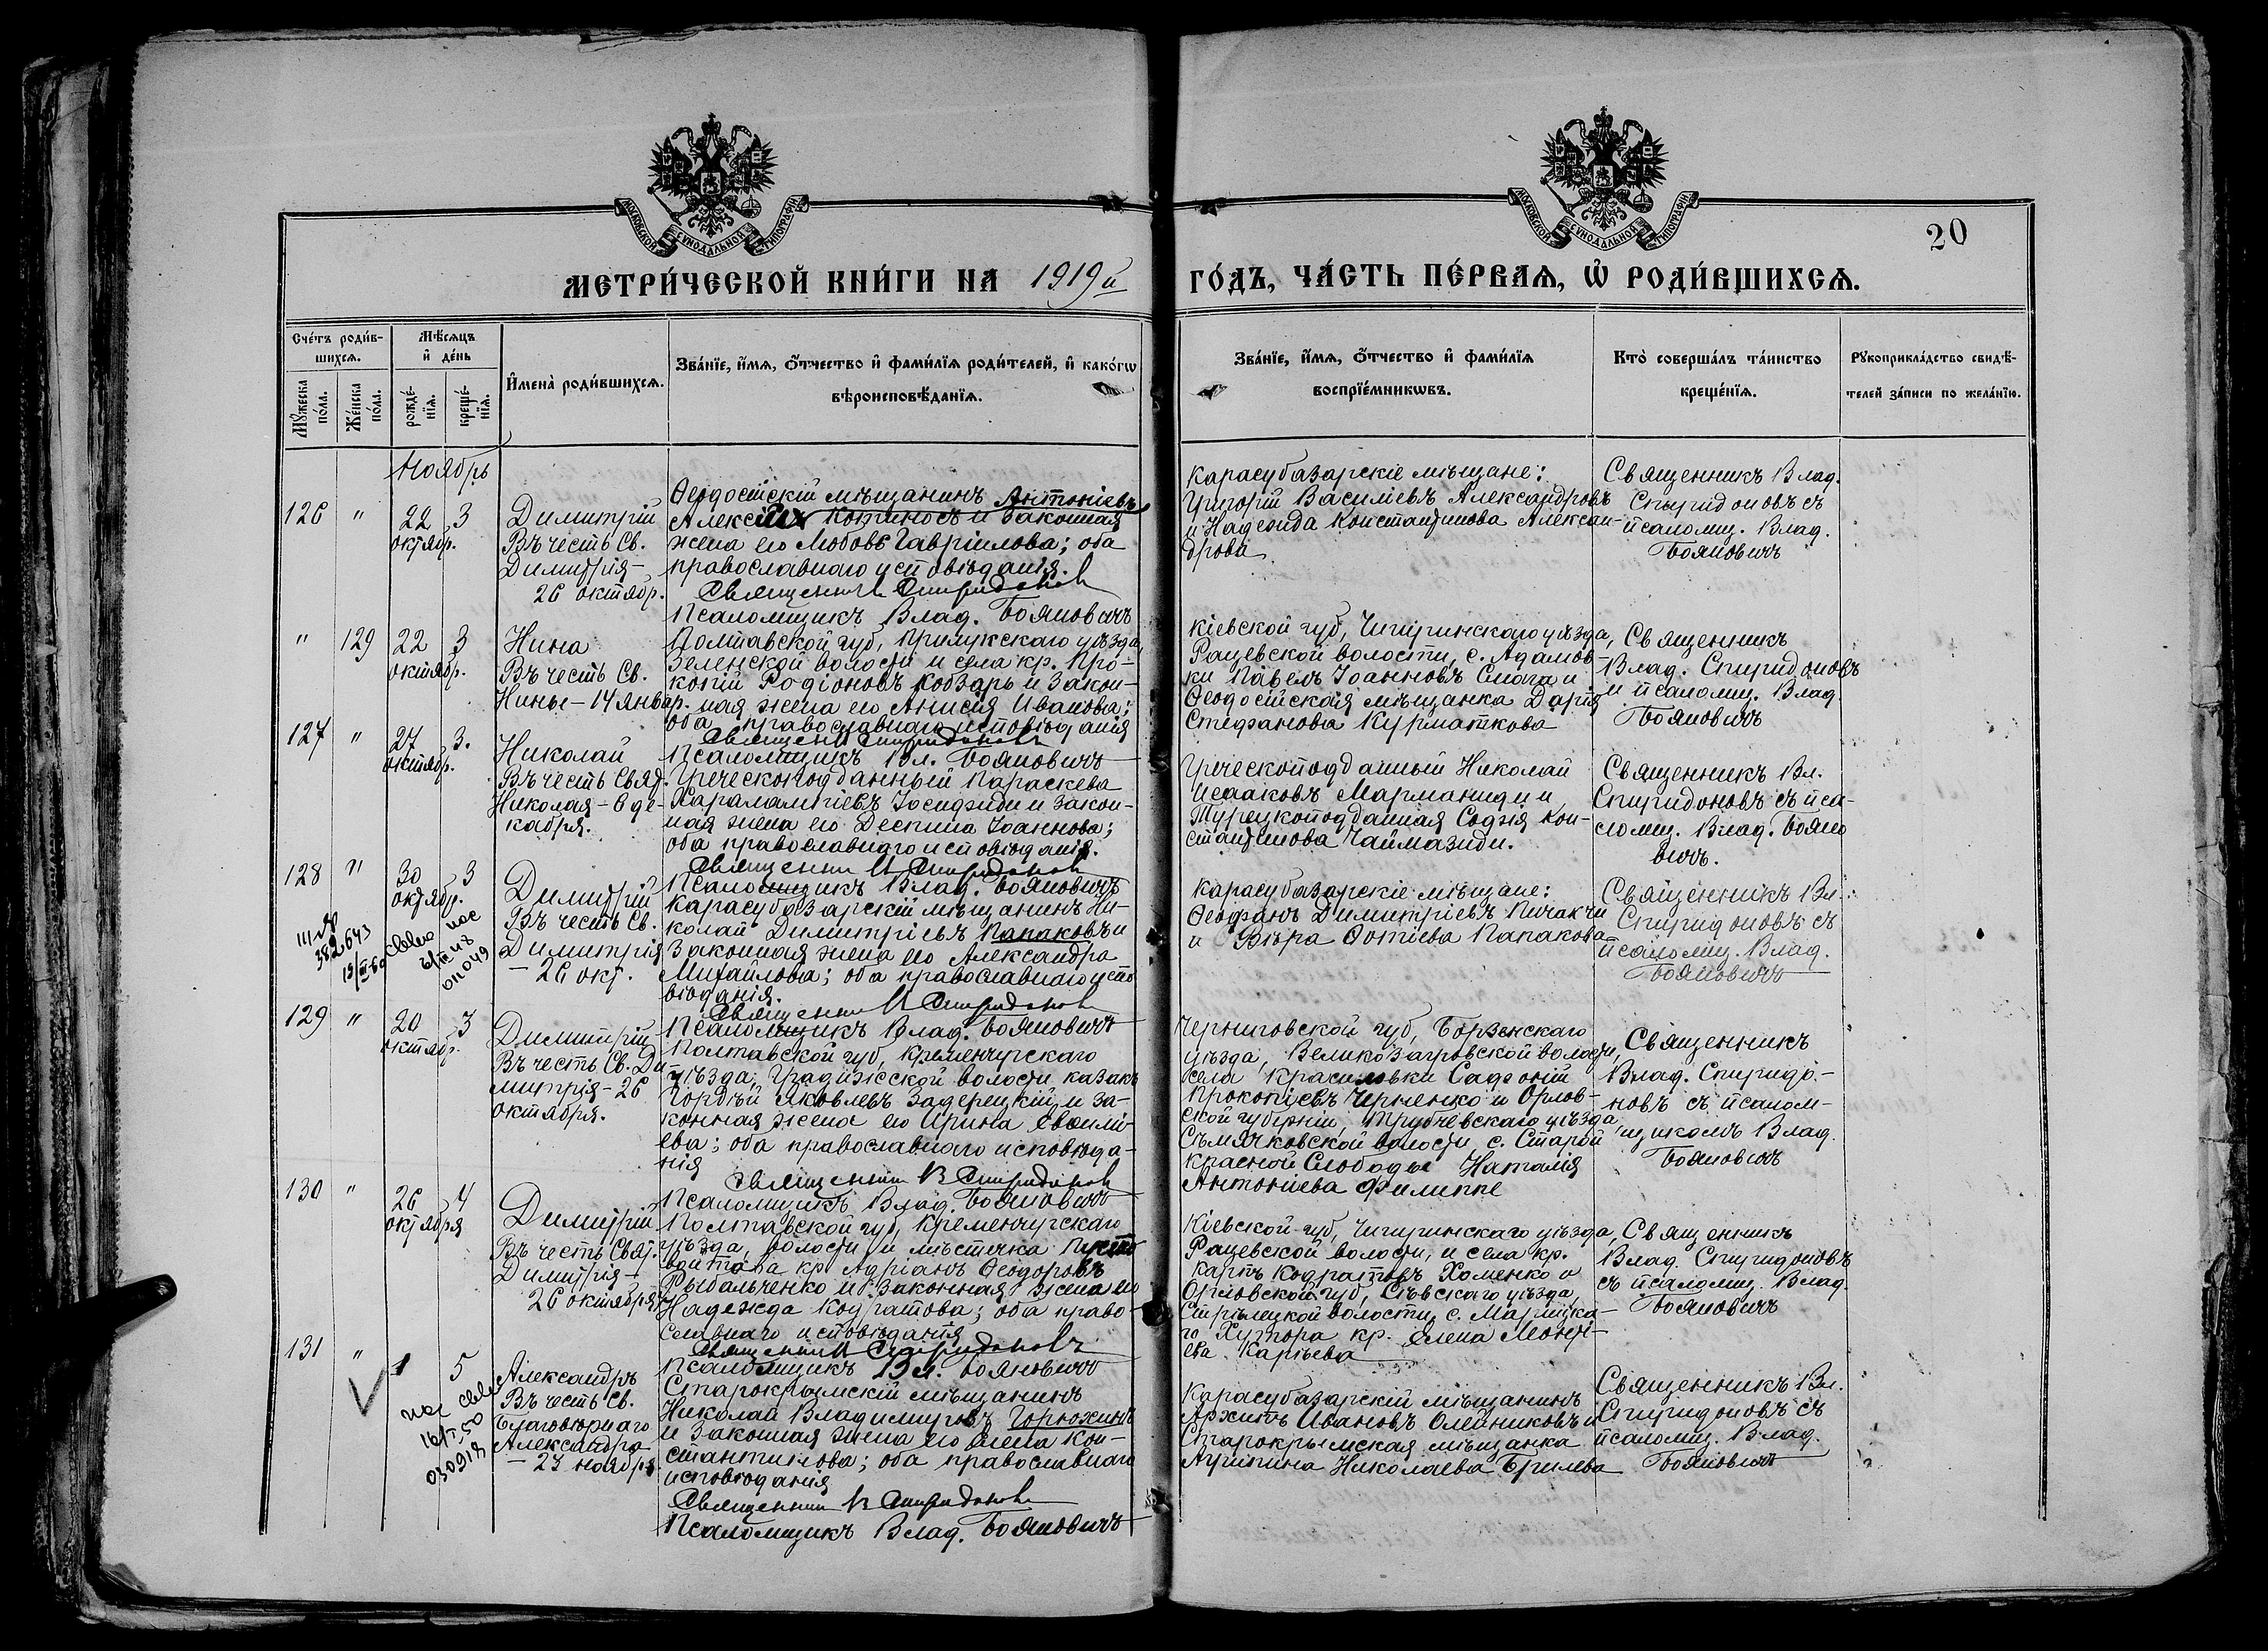 МОСКОВСКОЙ СУНОДАЛЬНОЙ ТИПОГРАФІИ
МОСКОВСКОЙ СУНОДАЛЬНОЙ ТИПОГРАФІИ
20
МЕТРИ́ЧЕСКОЙ КНИ́ГИ НА 1919й
ГО́ДЪ, ЧА́СТЬ ПЕ́РВАѦ, Ѡ҆ РОДИ́ВШИХСѦ.
Сче́тъ роди́в-
шихсѧ.
Мѣ́сѧцъ
и҆ де́нь
Мꙋ́жеска по́ла.
Же́нска по́ла.
рожде́-
нїѧ.
креще́-
нїѧ.
И҆мена̀ роди́вшихсѧ.
Зва́нїе, и҆́мѧ, ѻ҆́тчество и҆ фами́лїѧ роди́телей, и҆ како́гѡ
вѣроисповѣ́данїѧ.
Зва́нїе, и҆́мѧ, ѻ҆́тчество и҆ фами́лїѧ
воспрїе́мникѡвъ.
Кто̀ соверша́лъ та́инство
креще́нїѧ.
Рꙋкоприкла́дство свидѣ́-
телей за́писи по жела́нїю.
Ноябрь
126 " 22 октябр. 3
Димитрій
Въ честь Св.
Димитрія-
26 октябр.
Ѳеодосійскій мѣщанинъ Антоніевъ
и законная
жена его Любовь Гавріилова; оба
православнаго исповѣданія.
Священникъ Спиридонов
Псаломщикъ Влад. Бояновичъ
Карасубазарскіе мѣщане:
Григорій Василіевъ Александровъ
и Надежда Константинова Алексан-
дрова
Священникъ Влад.
Спиридоновъ съ
псаломщ. Влад.
Бояновичъ
" 129 22 октябр. 3
Нина
Въ честь Св.
Нины-14 январ.
Полтавской губ, Прилукскаго уѣзда,
волости и села кр. Про-
копій Родіоновъ Кобзарь и закон-
ная жена его Анисія Иванова;
оба православнаго исповѣданія
Священникъ Спиридонов
Псаломщикъ Вл. Бояновичъ
Кіевской губ, Чигиринскаго уѣзда,
Рацевской волости, с. Адамов-
ки Павелъ Іоанновъ и
Ѳеодосійская мѣщанка Дарія
Стефанова Курматкова
Священникъ
Влад. Спиридоновъ
и псаломщ. Влад.
Бояновичъ
127 " 27 октябр. 3.
Николай
Въ честь Свят.
Николая-6 де-
кабря.
Греческоподданный Параскева
Харалампіевъ Іосифиди и закон-
ная жена его Деспина Іоаннова;
оба православнаго исповѣданія.
Священникъ Спиридонов
Псаломщикъ Влад. Бояновичъ
Греческоподданный Николай
Исааковъ Марманиди и
Турецкоподданная Софія Кон-
стантинова Чаймазиди.
Священникъ Вл.
Спиридоновъ съ пса-
ломщ. Влад. Бояно
вичъ.
128 " 30 октябр. 3
382643
Димитрій
Въ честь Св.
Димитрія
- 26 окт.
Карасубазарскій мѣщанинъ Ни-
колай Димитріевъ Папаковъ и
законная жена его Александра
Михайлова; оба православнаго испо
вѣданія.
Священникъ Спиридонов
Псаломщикъ Влад. Бояновичъ
Карасубазарскіе мѣщане:
Ѳеофанъ Димитріевъ Пичакчи
и Вѣра Фотіева Папакова
Священникъ Вл.
Спиридоновъ съ
псаломщ. Влад.
Бояновичъ
129 " 20 октябр. 3
Димитрій
Въ честь Св. Ди-
митрія-26
октября.
Полтавской губ, Кременчугскаго
уѣзда, Градижской волости казакъ
Гордѣй Яковлевъ Задерецкій и за-
конная жена его Ирина
ева; оба православнаго исповѣда-
нія
Священникъ В Спиридонов
Псаломщикъ Влад. Бояновичъ
Черниговской губ, Борзенскаго
уѣзда, Великозагровской волости,
села Красиловки Сафоній
Прокопіевъ Черненко и Орлов-
ской губерніи, Трубчевскаго уѣзда,
Сѣмячковской волости с. Старой
Красной Слободы Наталія
Антоніева Филиппе
Священникъ
Влад. Спиридо-
новъ съ псалом-
щикомъ Влад.
Бояновичъ
130 " 26 октября 4
Димитрій
Въ честь Свят.
Димитрія-
26 октября
Полтавской губ, Кременчугскаго
уѣзда, волости и мѣстечка
кр Адріанъ Ѳеодоровъ
Рыбальченко и законная жена его
Надежда Кодратова; оба право-
славнаго исповѣданія
Священникъ Спиридоновъ
Псаломщикъ Вл. Бояновичъ
Кіевской губ, Чигиринскаго уѣзда,
Рацевской волости, и села кр.
Карпъ Кодратовъ Хоменко и
Орловской губ, Сѣвскаго уѣзда,
Стрѣлецкой волости, с. Марицка-
го Хутора кр. Елена
Карпьева
Священникъ
Влад. Спиридоновъ
съ псаломщ. Влад.
Бояновичъ
131 " 1 5
Александръ
Въ честь Св.
Благовѣрнаго
Александра
- 23 ноября.
Старокрымскій мѣщанинъ
Николай Владимировъ Горюжинъ
и законная жена его Елена Кон-
стантинова; оба православнаго
исповѣданія
Священникъ В Спиридонов
Псаломщикъ Влад. Бояновичъ
Карасубазарскій мѣщанинъ
Архипъ Ивановъ Олейниковъ и
Старокрымская мѣщанка
Агрипина Николаева Брилева
Священникъ Вл.
Спиридоновъ съ
псаломщ. Влад.
Бояновичъ